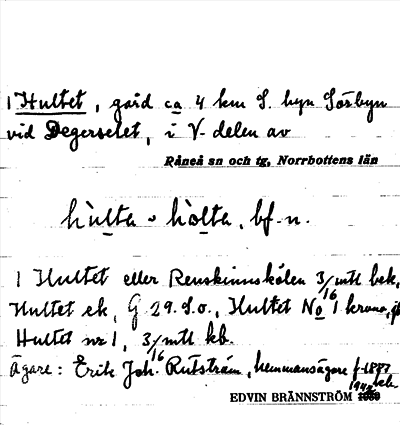 1 Hultet, gård ca 4 km S. byn Sörbyn
vid Degerselet, i V delen av
Råneå sn och tg, Norrbottens län
hùlta ~ hòlta, bf. n.
1 Hultet eller Renskinnskölen 3/16 mtl bek.
Hultet ek, G 29.S.o., Hultet No 1 krono,
Hultet nr 1, 3/16 mtl kb.
Ägare: Erik Joh. Rutström, hemmansägare f. 1887
1942
EDVIN BRÄNNSTRÖM